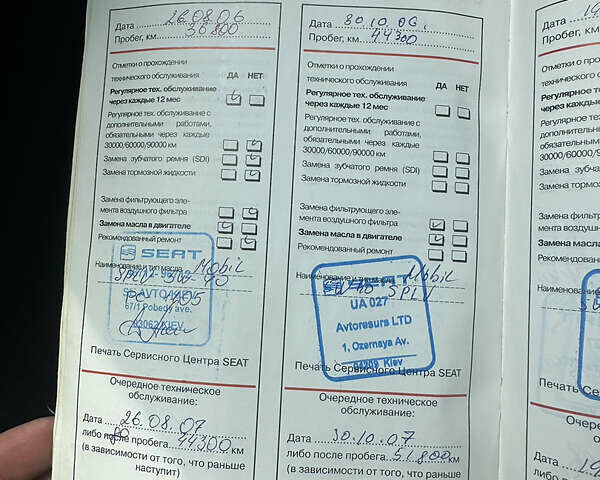 Дата 26.08.06
Пробег, км 36800
Отметки о прохождении
технического обслуживания ДА НЕТ
Регулярное тех. обслуживание
через каждые 12 мес
Регулярное тех. обслуживание с
дополнительными работами,
обязательными через каждые
30000/60000/90000 км
Замена зубчатого ремня (SDI)
Замена тормозной жидкости
Замена фильтрующего эле-
мента воздушного фильтра
Замена масла в двигателе
Рекомендованный ремонт
SEAT
Наименование и тип масла Mobil
67/1 Pobedy ave.
03062 KIEV
Печать Сервисного Центра SEAT
Очередное техническое
обслуживание:
Дата 26.08.07
либо после пробега 44300 км
(в зависимости от того, что раньше
наступит)
Дата 30.10.06.
Пробег, км 44300
Отметки о прохождении
технического обслуживания ДА НЕТ
Регулярное тех. обслуживание
через каждые 12 мес
Регулярное тех. обслуживание с
дополнительными работами,
обязательными через каждые
30000/60000/90000 км
Замена зубчатого ремня (SDI)
Замена тормозной жидкости
Замена фильтрующего эле-
мента воздушного фильтра
Замена масла в двигателе
Рекомендованный ремонт
Наименование и тип масла Mobil
SEAT
UA 027
Avtoresurs LTD
1, Ozernaya Av.
04209 Kiev
Печать Сервисного Центра SEAT
Очередное техническое
обслуживание:
Дата 30.10.07
либо после пробега 51800 км
(в зависимости от того, что раньше
Дата
Пробег, км
Отметки о
технического
Регулярное
через
Регулярное
30000/60000/9000
Замена
Замена
Замена
мента
Замена
Печать
Дата
либо